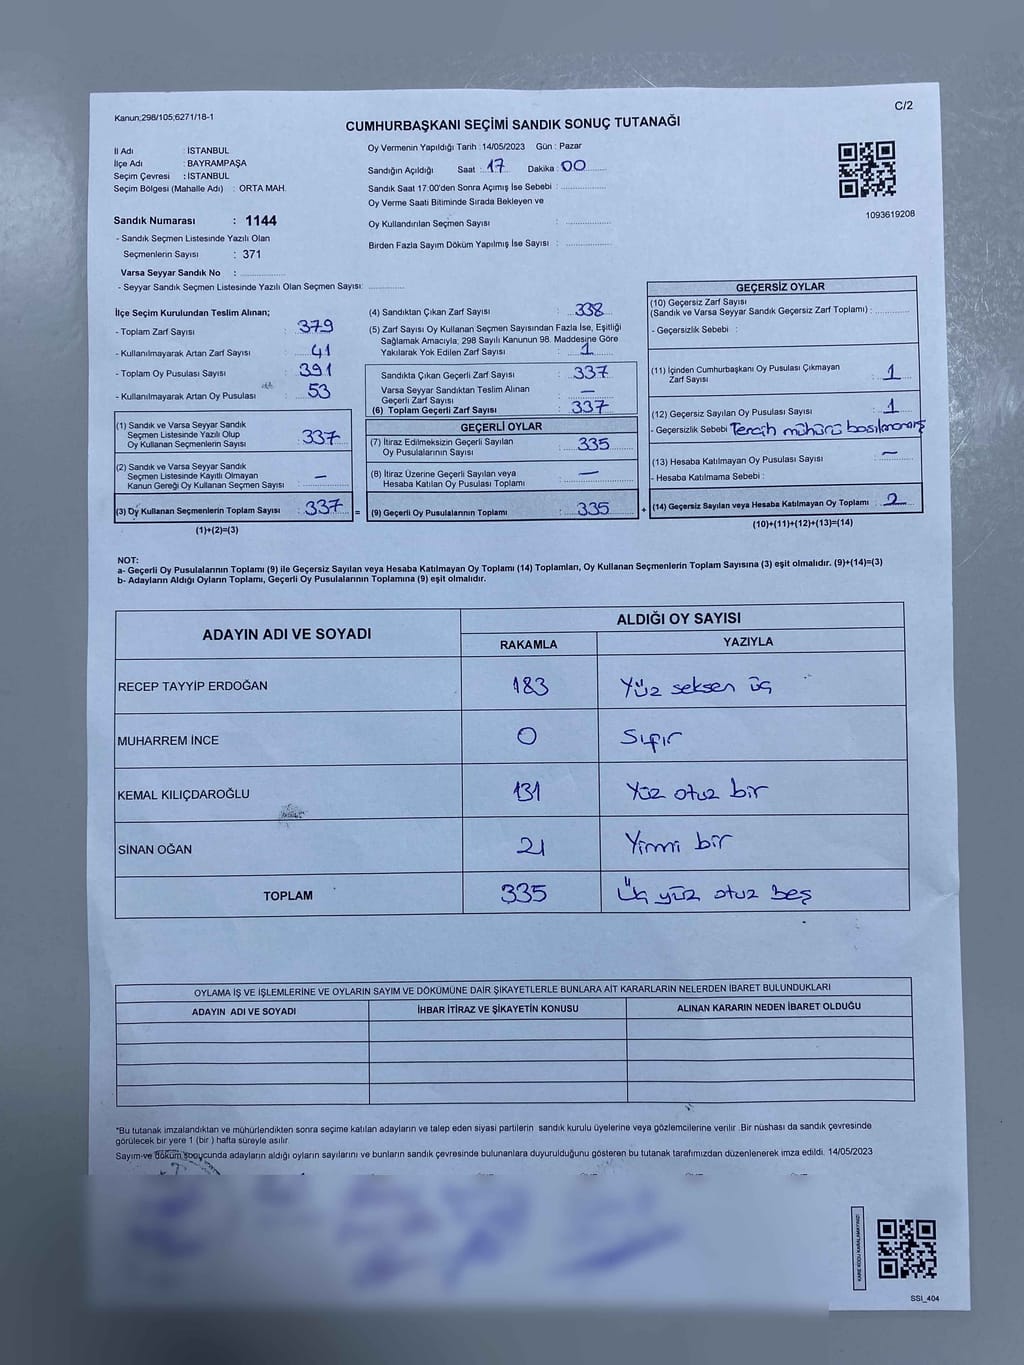 Kanun;298/105;6271/18-1
C/2
CUMHURBAŞKANI SEÇİMİ SANDIK SONUÇ TUTANAĞI
İl Adı : İSTANBUL
İlçe Adı : BAYRAMPAŞA
Seçim Çevresi : İSTANBUL
Seçim Bölgesi (Mahalle Adı) : ORTA MAH.
Sandık Numarası : 1144
- Sandık Seçmen Listesinde Yazılı Olan
Seçmenlerin Sayısı : 371
Varsa Seyyar Sandık No :
- Seyyar Sandık Seçmen Listesinde Yazılı Olan Seçmen Sayısı:
Oy Vermenin Yapıldığı Tarih : 14/05/2023 Gün : Pazar
Sandığın Açıldığı Saat : 17 Dakika : 00
Sandık Saat 17:00'den Sonra Açımış İse Sebebi :
Oy Verme Saati Bitiminde Sırada Bekleyen ve
Oy Kullandırılan Seçmen Sayısı :
Birden Fazla Sayım Döküm Yapılmış İse Sayısı :
1093619208
İlçe Seçim Kurulundan Teslim Alınan;
- Toplam Zarf Sayısı : 379
- Kullanılmayarak Artan Zarf Sayısı : 41
- Toplam Oy Pusulası Sayısı : 391
- Kullanılmayarak Artan Oy Pusulası : 53
(1) Sandık ve Varsa Seyyar Sandık
Seçmen Listesinde Yazılı Olup
Oy Kullanan Seçmenlerin Sayısı : 337
(2) Sandık ve Varsa Seyyar Sandık
Seçmen Listesinde Kayıtlı Olmayan
Kanun Gereği Oy Kullanan Seçmen Sayısı : –
(3) Oy Kullanan Seçmenlerin Toplam Sayısı : 337
(1)+(2)=(3)
=
(4) Sandıktan Çıkan Zarf Sayısı : 338
(5) Zarf Sayısı Oy Kullanan Seçmen Sayısından Fazla İse, Eşitliği
Sağlamak Amacıyla; 298 Sayılı Kanunun 98. Maddesine Göre
Yakılarak Yok Edilen Zarf Sayısı : 1
Sandıkta Çıkan Geçerli Zarf Sayısı : 337
Varsa Seyyar Sandıktan Teslim Alınan
Geçerli Zarf Sayısı : –
(6) Toplam Geçerli Zarf Sayısı : 337
GEÇERLİ OYLAR
(7) İtiraz Edilmeksizin Geçerli Sayılan
Oy Pusulalarının Sayısı : 335
(8) İtiraz Üzerine Geçerli Sayılan veya
Hesaba Katılan Oy Pusulası Toplamı : –
(9) Geçerli Oy Pusulalarının Toplamı : 335
+
GEÇERSİZ OYLAR
(10) Geçersiz Zarf Sayısı
(Sandık ve Varsa Seyyar Sandık Geçersiz Zarf Toplamı) :
- Geçersizlik Sebebi :
(11) İçinden Cumhurbaşkanı Oy Pusulası Çıkmayan
Zarf Sayısı : 1
(12) Geçersiz Sayılan Oy Pusulası Sayısı : 1
- Geçersizlik Sebebi Tercih mühürü basılmamış
(13) Hesaba Katılmayan Oy Pusulası Sayısı : –
- Hesaba Katılmama Sebebi :
(14) Geçersiz Sayılan veya Hesaba Katılmayan Oy Toplamı : 2
(10)+(11)+(12)+(13)=(14)
NOT:
a- Geçerli Oy Pusulalarının Toplamı (9) ile Geçersiz Sayılan veya Hesaba Katılmayan Oy Toplamı (14) Toplamları, Oy Kullanan Seçmenlerin Toplam Sayısına (3) eşit olmalıdır. (9)+(14)=(3)
b- Adayların Aldığı Oyların Toplamı, Geçerli Oy Pusulalarının Toplamına (9) eşit olmalıdır.
ADAYIN ADI VE SOYADI
ALDIĞI OY SAYISI
RAKAMLA YAZIYLA
RECEP TAYYİP ERDOĞAN 183 Yüz seksen üç
MUHARREM İNCE 0 Sıfır
KEMAL KILIÇDAROĞLU 131 Yüz otuz bir
SİNAN OĞAN 21 Yirmi bir
TOPLAM 335 Üç yüz otuz beş
OYLAMA İŞ VE İŞLEMLERİNE VE OYLARIN SAYIM VE DÖKÜMÜNE DAİR ŞİKAYETLERLE BUNLARA AİT KARARLARIN NELERDEN İBARET BULUNDUKLARI
ADAYIN ADI VE SOYADI İHBAR İTİRAZ VE ŞİKAYETİN KONUSU ALINAN KARARIN NEDEN İBARET OLDUĞU
*Bu tutanak imzalandıktan ve mühürlendikten sonra seçime katılan adayların ve talep eden siyasi partilerin sandık kurulu üyelerine veya gözlemcilerine verilir .Bir nüshası da sandık çevresinde
görülecek bir yere 1 (bir ) hafta süreyle asılır.
Sayım ve döküm sonucunda adayların aldığı oyların sayılarını ve bunların sandık çevresinde bulunanlara duyurulduğunu gösteren bu tutanak tarafımızdan düzenlenerek imza edildi. 14/05/2023
KARE KODU KARALAMAYINIZ!
SSI_404